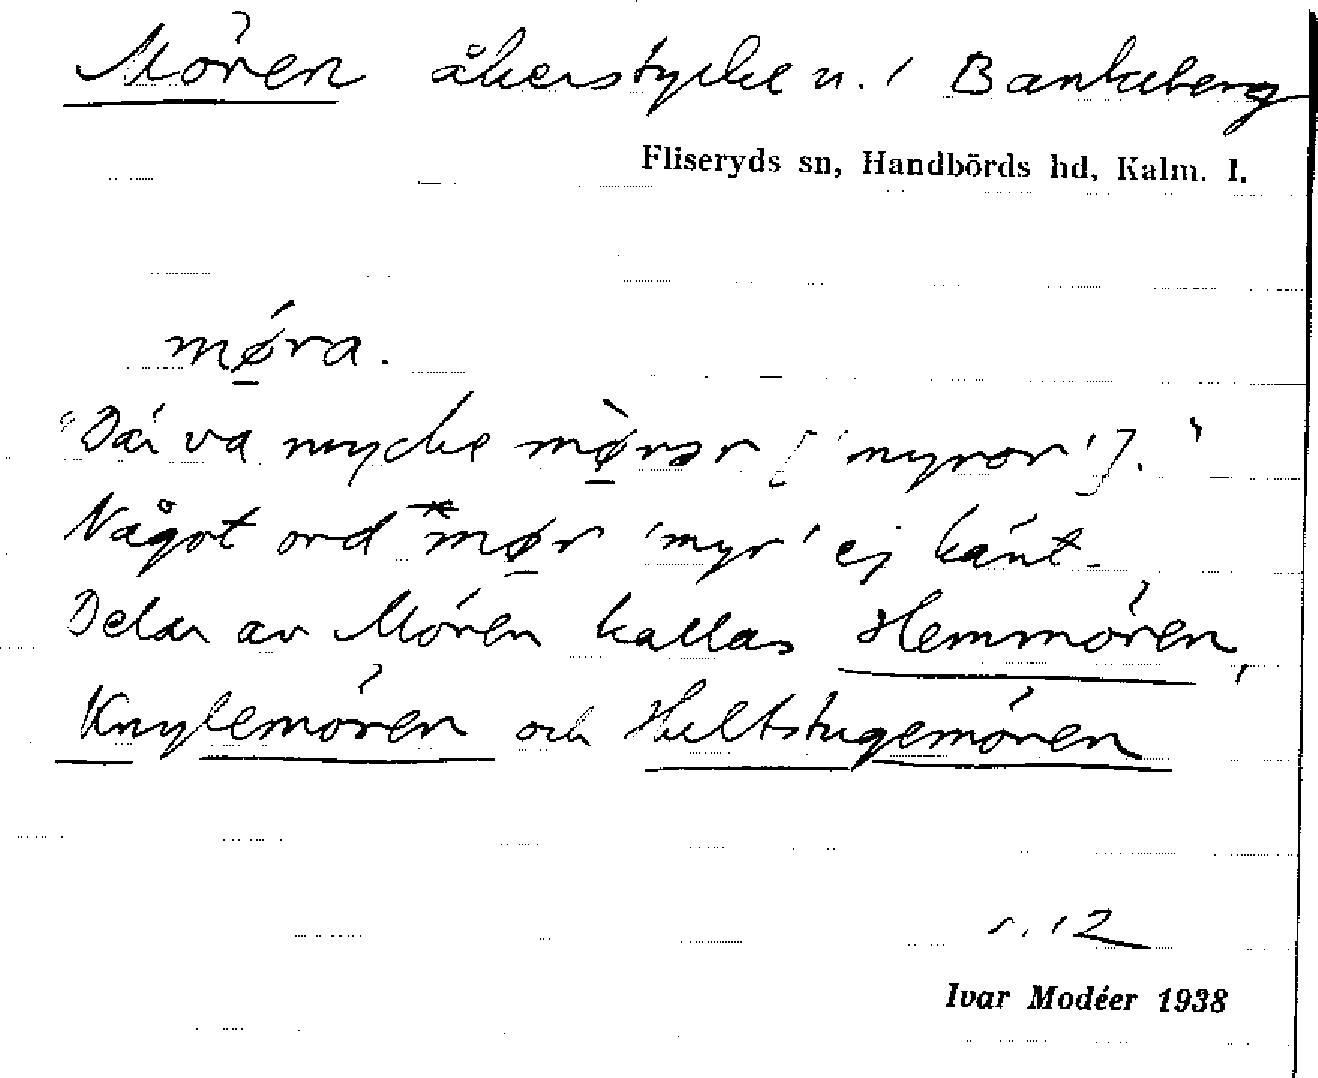 Mören åkerstycke u. / Bankeberg
Fliseryds sn, Handbörds hd, Kalm. l.
mǿ̱ra.
"Där va mycke mø̱̀rər ['myror']."
Något ord *mø̱r 'myr' ej känt.
Delar av Mören kallas Hemmören,
Knylemören och Hultstugemören
s. 12
Ivar Modéer 1938